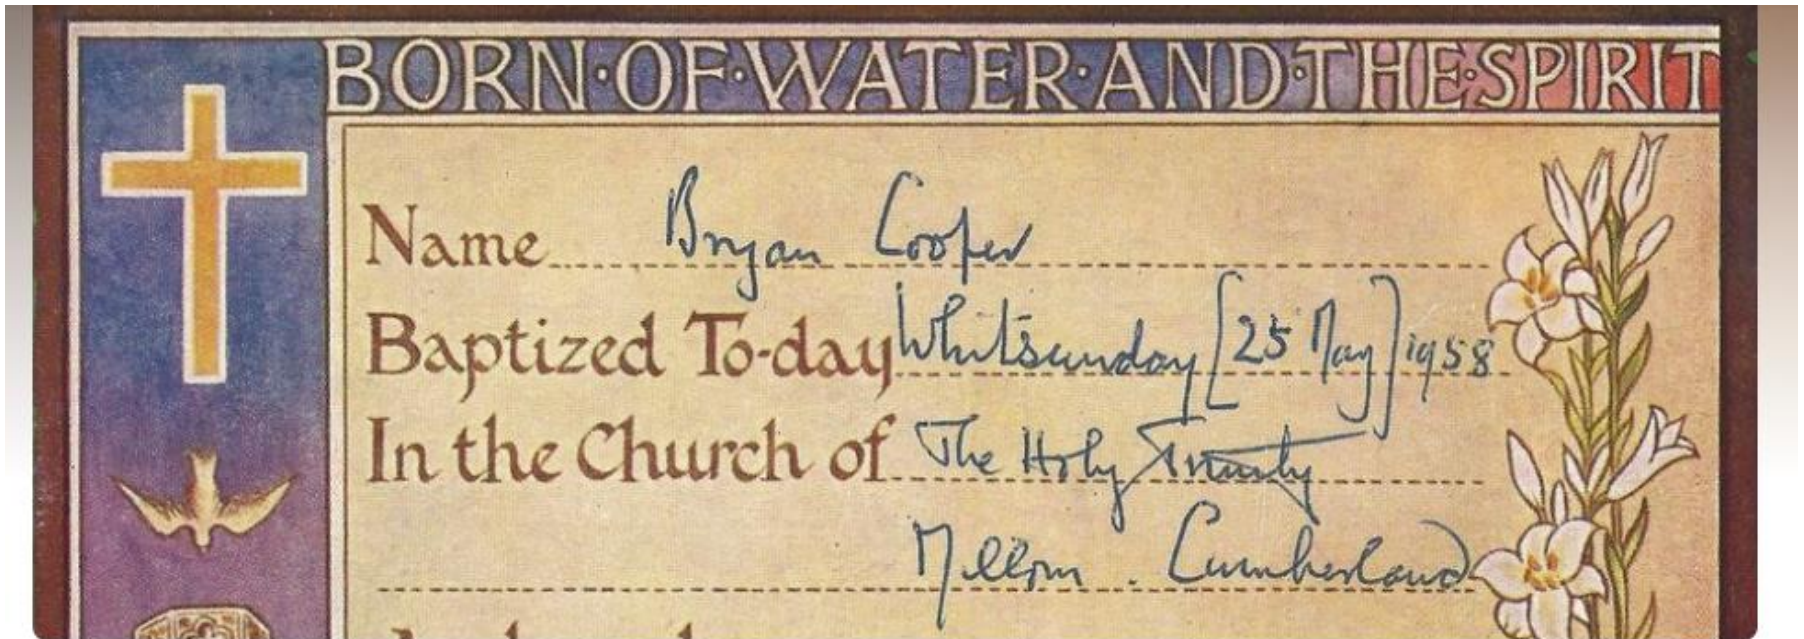 BORN·OF·WATER·AND·THE·SPIRIT
Name Bryan Cooper
Baptized To-day Whitsunday [25 May] 1958
In the Church of The Holy Trinity
Millom. Cumberland